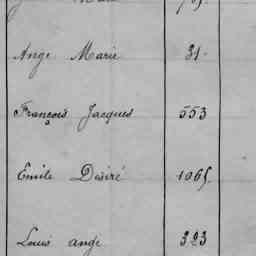 Ange Marie 31.
François Jacques 553
Emile Désiré 1065.
Louis ange 323